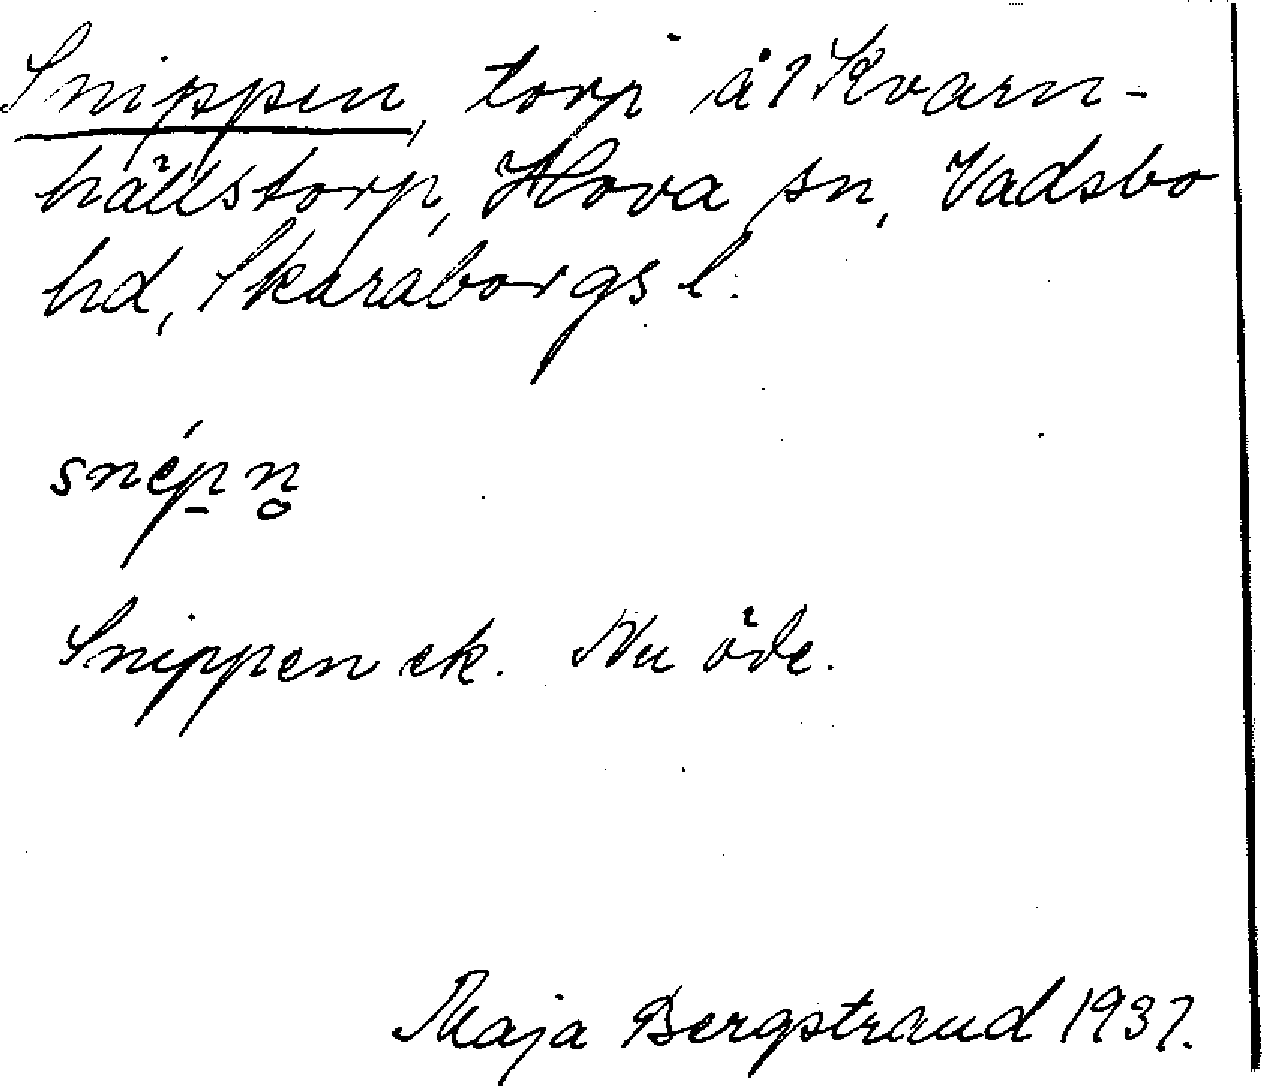 Snippen, torp å 1 Kvarn-
hällstorp, Hova sn, Vadsbo
hd, Skaraborgs l.
snép̠n̥
Snippen ek. Nu öde.
Maja Bergstrand 1937.